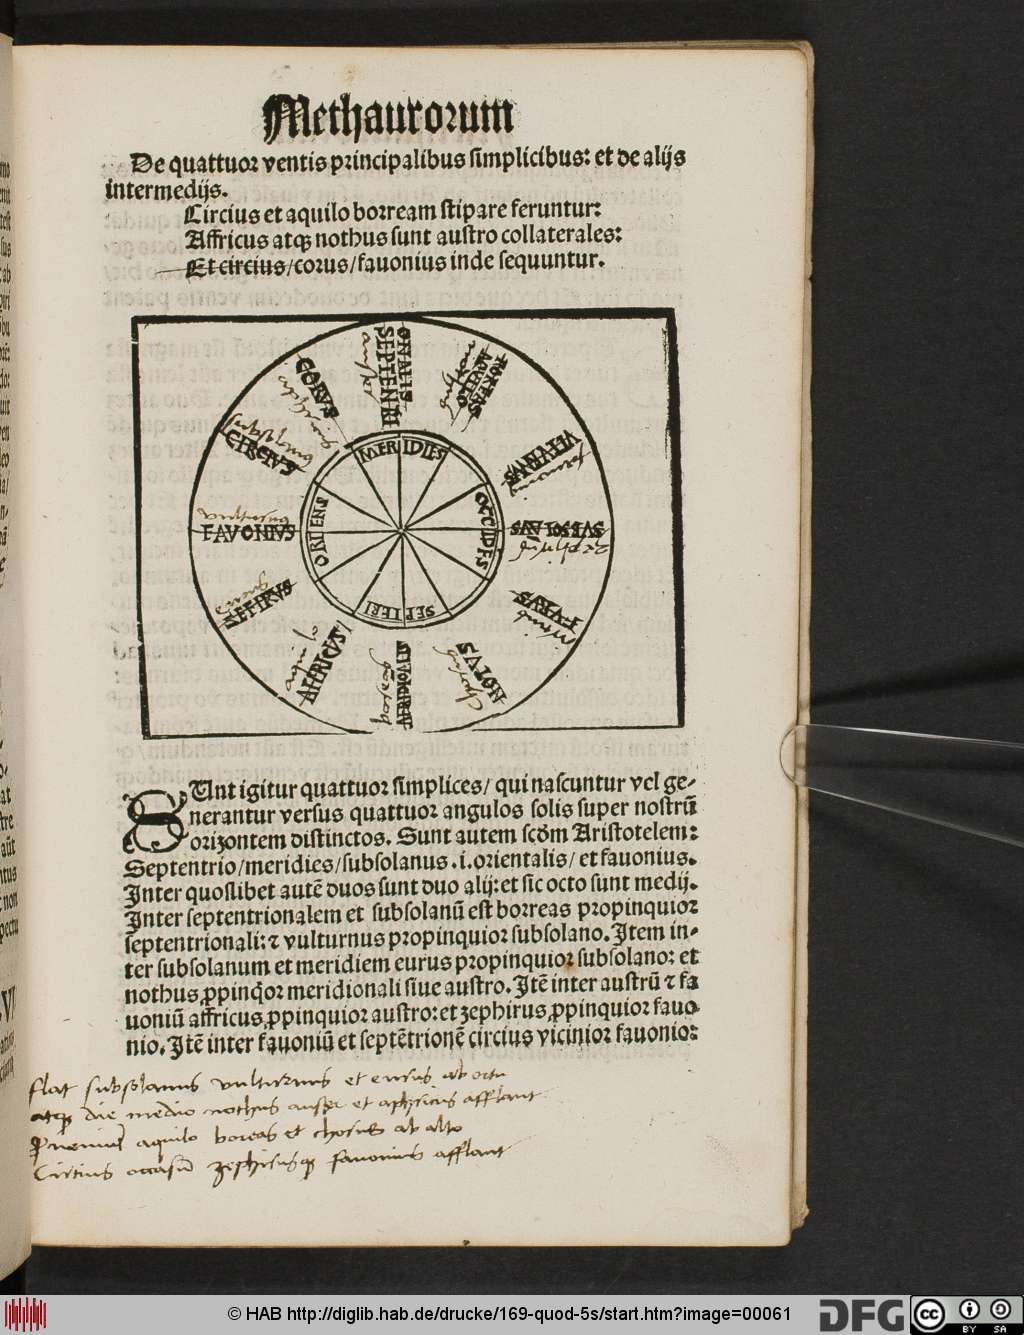 Methaurorum
De quattuor ventis principalibus simplicibus: et de alijs
intermedijs.
Circius et aquilo borream stipare feruntur:
Affricus atqꝫ nothus sunt austro collaterales:
Et circius/corus/fauonius inde sequuntur.
SEPTENTRI
ONALIS
CORVS
CIRCIVS
FAVONIVS
ZEFIRVS
AFFRICVS
NOTVS
EVRVS
SVBSOLANVS
AQVILO
BOREAS
MERIDIES
ORIENS
OCCIDES
SEPTETRI
SUnt igitur quattuor simplices/ qui nascuntur vel ge-
nerantur versus quattuor angulos solis super nostrū
orizontem distinctos. Sunt autem scd̄m Aristotelem:
Septentrio/meridies/subsolanus .i. orientalis/ et fauonius.
Inter quoslibet autē duos sunt duo alij: et sic octo sunt medij.
Inter septentrionalem et subsolanū est borreas propinquior
septentrionali: ⁊ vulturnus propinquior subsolano. Item in-
ter subsolanum et meridiem eurus propinquior subsolano: et
nothus ꝓpinq̇or meridionali siue austro. Itē inter austrū ⁊ fa
uoniū affricus ꝓpinquior austro: et zephirus ꝓpinquior fauo
nio. Itē inter fauoniū et septētrionē circius vicinior fauonio:
flat subsolanus vulturnus et eurus ab ortu
atqꝫ die medio nothus auster et aphricus afflant
aquilo boreas et chorus ab alto
Circius occasū zephirusqꝫ fauonius afflant
© HAB http://diglib.hab.de/drucke/169-quod-5s/start.htm?image=00061
DFG
cc
BY SA